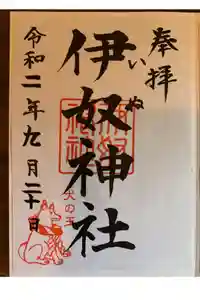 奉拝
伊奴神社
いぬ
令和二年九月二十日
犬の王